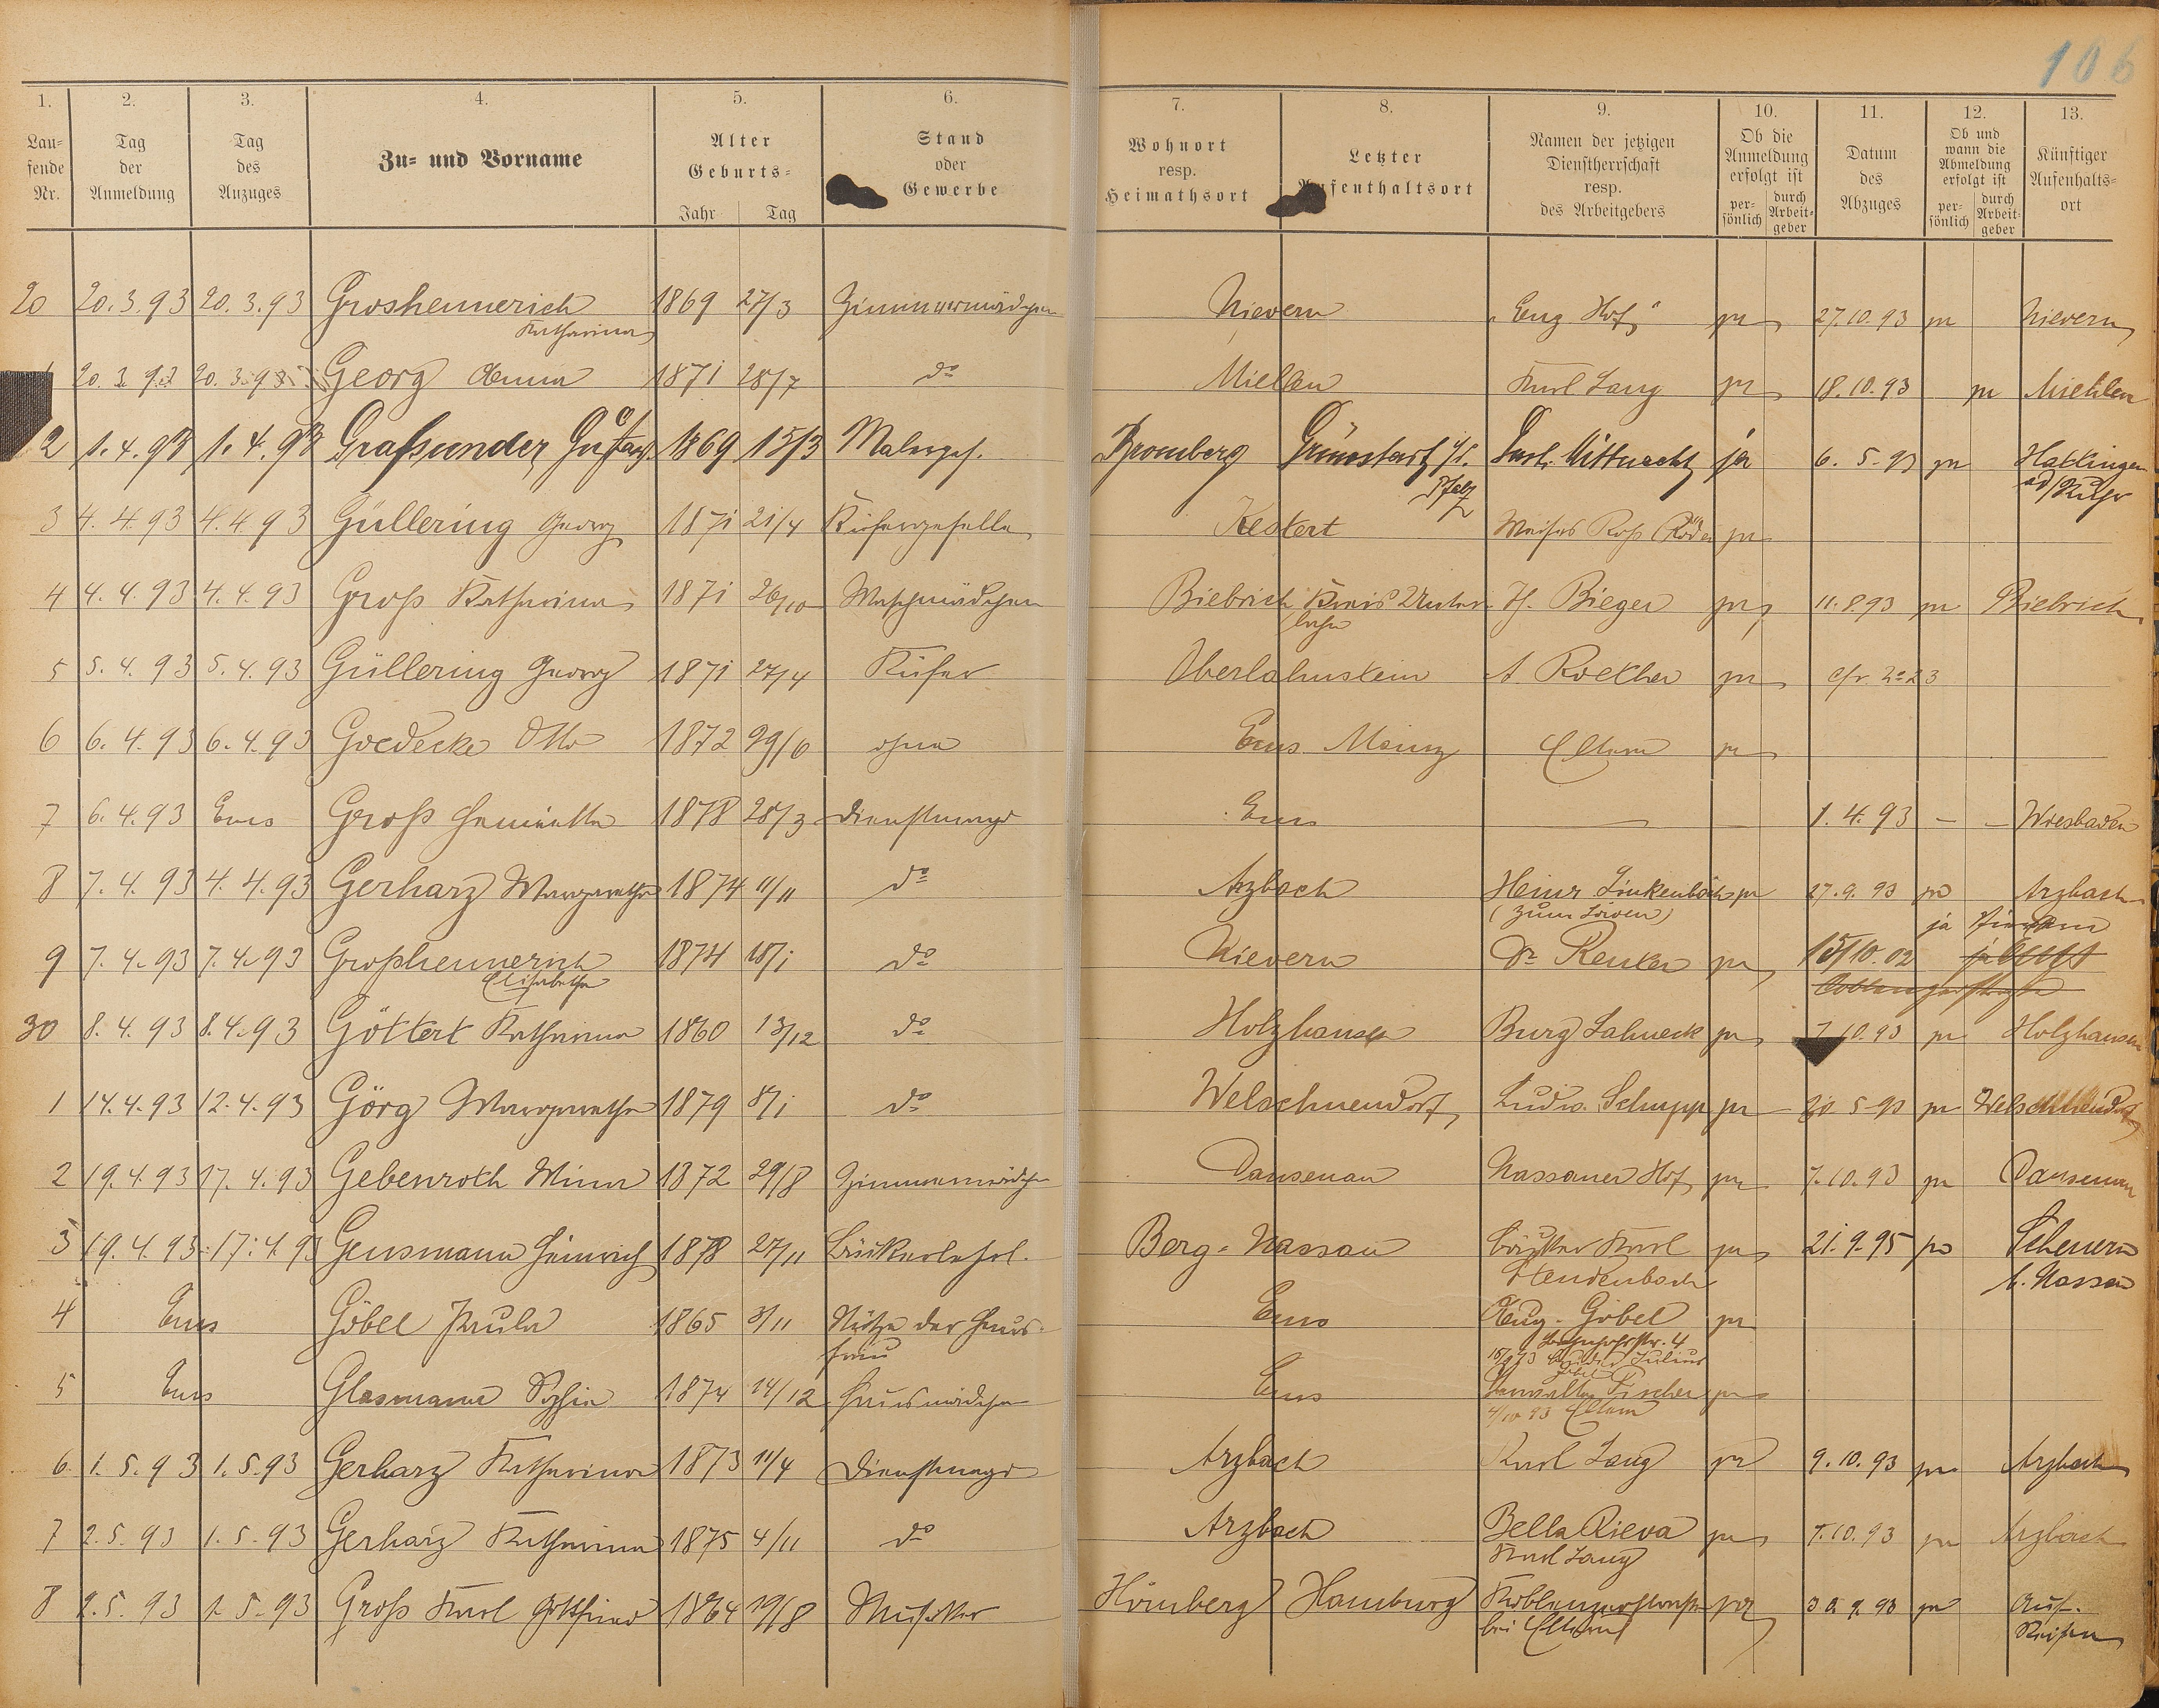 106
1. 2. 3. 4. 5. 6. 7. 8. 9. 10. 11. 12. 13.
Lau=fende Nr. Tag der Anmeldung Tag des Anzuges Zu= und Vorname Alter Geburts= Jahr Tag Stand oder Gewerbe Wohnort resp. Heimathsort Letzter Aufenthaltsort Namen der jetzigen Dienstherrschaft resp. des Arbeitgebers Ob die Anmeldung erfolgt ist per=sönlich durch Arbeit=geber Datum des Abzuges Ob und wann die Abmeldung erfolgt ist per=sönlich durch Arbeit=geber Künftiger Aufenthalts=ort
20 20.3.93 20.3.93 Groshennerich 1869 27/3 Zimmermädchen Nievern "Eng Hof" 27.10.93 Nievern
Katharina
1 20.3.93 20.3.93 Georg Anna 1871 28/7 do Miellen Karl Lang 18.10.93 Miehlen
2 1.4.93 1.4.93 Graßunder Gustav 1869 15/3 Malergeh. Bromberg Grünstadt i/d. Gust. Mittnacht ja 6.5.93 Hattingen
Pfalz a/d Ruhr
3 4.4.93 4.4.93 Güllering Georg 1871 21/4 Küfergeselle Kestert Weißes Roß (Röder
4 4.4.93 4.4.93 Groß Katharina 1871 26/10 Waschmädchen Biebrich Kreis Unter H. Bieger 11.8.93 Biebrich
lahn
5 5.4.93 5.4.93 Güllering Georg 1871 27/4 Küfer Oberlahnstein A. Roether cfr. No 23
6 6.4.93 6.4.93 Goedecke Otto 1872 29/6 ohne Ems Mainz Eltern
7 6.4.93 Ems Groß Henriette 1878 28/3 Dienstmagd Ems — 1.4.93 — — Wiesbaden
8 7.4.93 4.4.93 Gerharz Margaretha 1874 11/11 do Arzbach Heinr Linkenbach 27.9.93 Arzbach
(zum Löwen) ja
9 7.4.93 7.4.93 Großhennerich 1874 18/1 do Nievern Dr Reuker 15/10.02
Elisabetha
30 8.4.93 8.4.93 Göttert Katharina 1860 13/12 do Holzhausen Burg Lahneck 7.10.93 Holzhausen
1 14.4.93 12.4.93 Görg Margaretha 1879 8/1 do Welschneudorf Ludw. Schupp 20.5.93 Welschneudorf
2 19.4.93 17.4.93 Gebenroth Mina 1872 29/8 Zimmermädchen Dausenau Nassauer Hof 7.10.93 Dausenau
3 19.4.93 17.4.93 Gensmann Heinrich 1878 27/11 Bäckerlehrl. Berg=Nassau Bäcker Karl 21.9.95 Scheuern
Heudenbach b. Nassau
4 Ems Göbel Paula 1865 3/11 Stütze der Haus- Ems Aug. Göbel
frau Bahnhofstr. 4
Julius
5 Ems Glasmann Sophie 1874 14/12 Hausmädchen Ems Verwalter Fischer
4/10 93 Eltern
6 1.5.93 1.5.93 Gerharz Katharina 1873 11/4 Dienstmagd Arzbach Karl Lang 9.10.93 Arzbach
7 2.5.93 1.5.93 Gerharz Katharina 1875 4/11 do Arzbach Bella Rieva 7.10.93 Arzbach
Karl Lang
8 2.5.93 1.5.93 Groß Karl Gottfried 1864 19/8 Musiker Homberg Hamburg Koblenzerstraße 30.9.93 Auf
bei Eltern Reisen